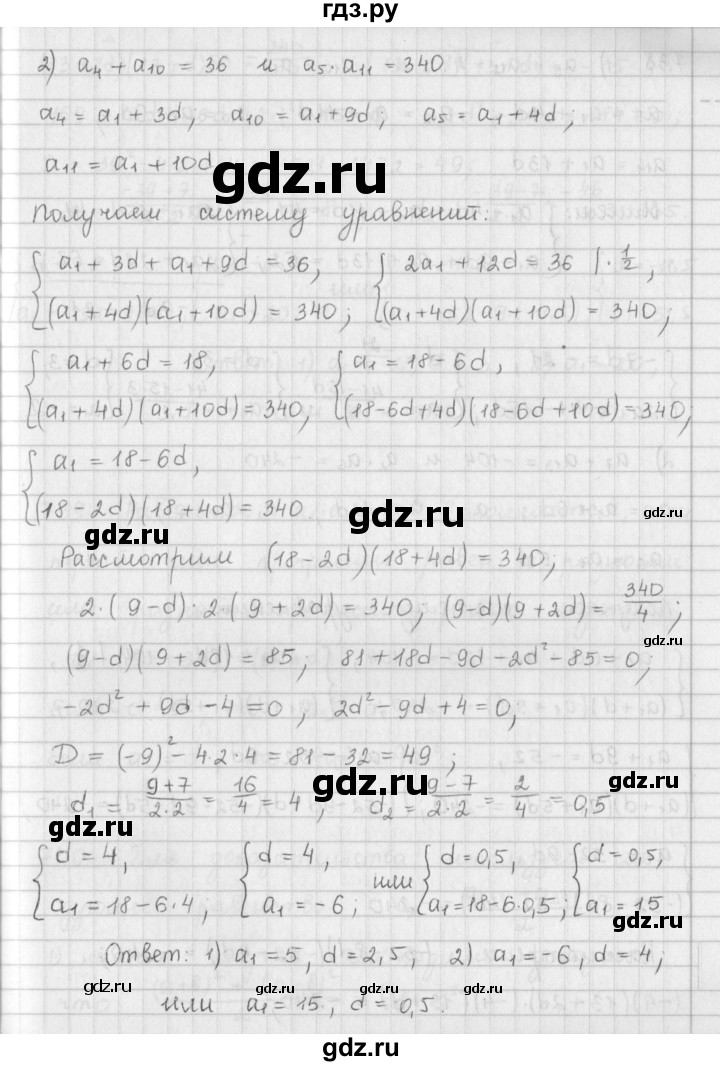 гдз.ру
2) a₄ + a₁₀ = 36 и a₅ · a₁₁ = 340
a₄ = a₁ + 3d, a₁₀ = a₁ + 9d, a₅ = a₁ + 4d;
a₁₁ = a₁ + 10d
gdz.ru
Получаем систему уравнений:
{ a₁ + 3d + a₁ + 9d = 36, { 2a₁ + 12d = 36 | · 1/2,
(a₁ + 4d)(a₁ + 10d) = 340; (a₁ + 4d)(a₁ + 10d) = 340;
{ a₁ + 6d = 18, { a₁ = 18 - 6d,
(a₁ + 4d)(a₁ + 10d) = 340, (18 - 6d + 4d)(18 - 6d + 10d) = 340;
{ a₁ = 18 - 6d,
(18 - 2d)(18 + 4d) = 340
gdz.ru gdz.ru gdz.ru
Рассмотрим (18 - 2d)(18 + 4d) = 340;
2 · (9 - d) · 2 · (9 + 2d) = 340, (9 - d)(9 + 2d) = 340/4;
gdz.ru
(9 - d)(9 + 2d) = 85, 81 + 18d - 9d - 2d² - 85 = 0;
-2d² + 9d - 4 = 0, 2d² - 9d + 4 = 0,
D = (-9)² - 4·2·4 = 81 - 32 = 49;
gdz.ru gdz.ru
d₁ = 9+7/2·2 = 16/4 = 4, d₂ = 9-7/2·2 = 2/4 = 0,5
{ d = 4, { d = 4, или { d = 0,5, { d = 0,5,
a₁ = 18 - 6·4; a₁ = -6; a₁ = 18 - 6·0,5; a₁ = 15
gdz.ru
Ответ: 1) a₁ = 5, d = 2,5, 2) a₁ = -6, d = 4;
gdz.ru gdz.ru gdz.ru gdz.ru
или a₁ = 15, d = 0,5.
gdz.ru